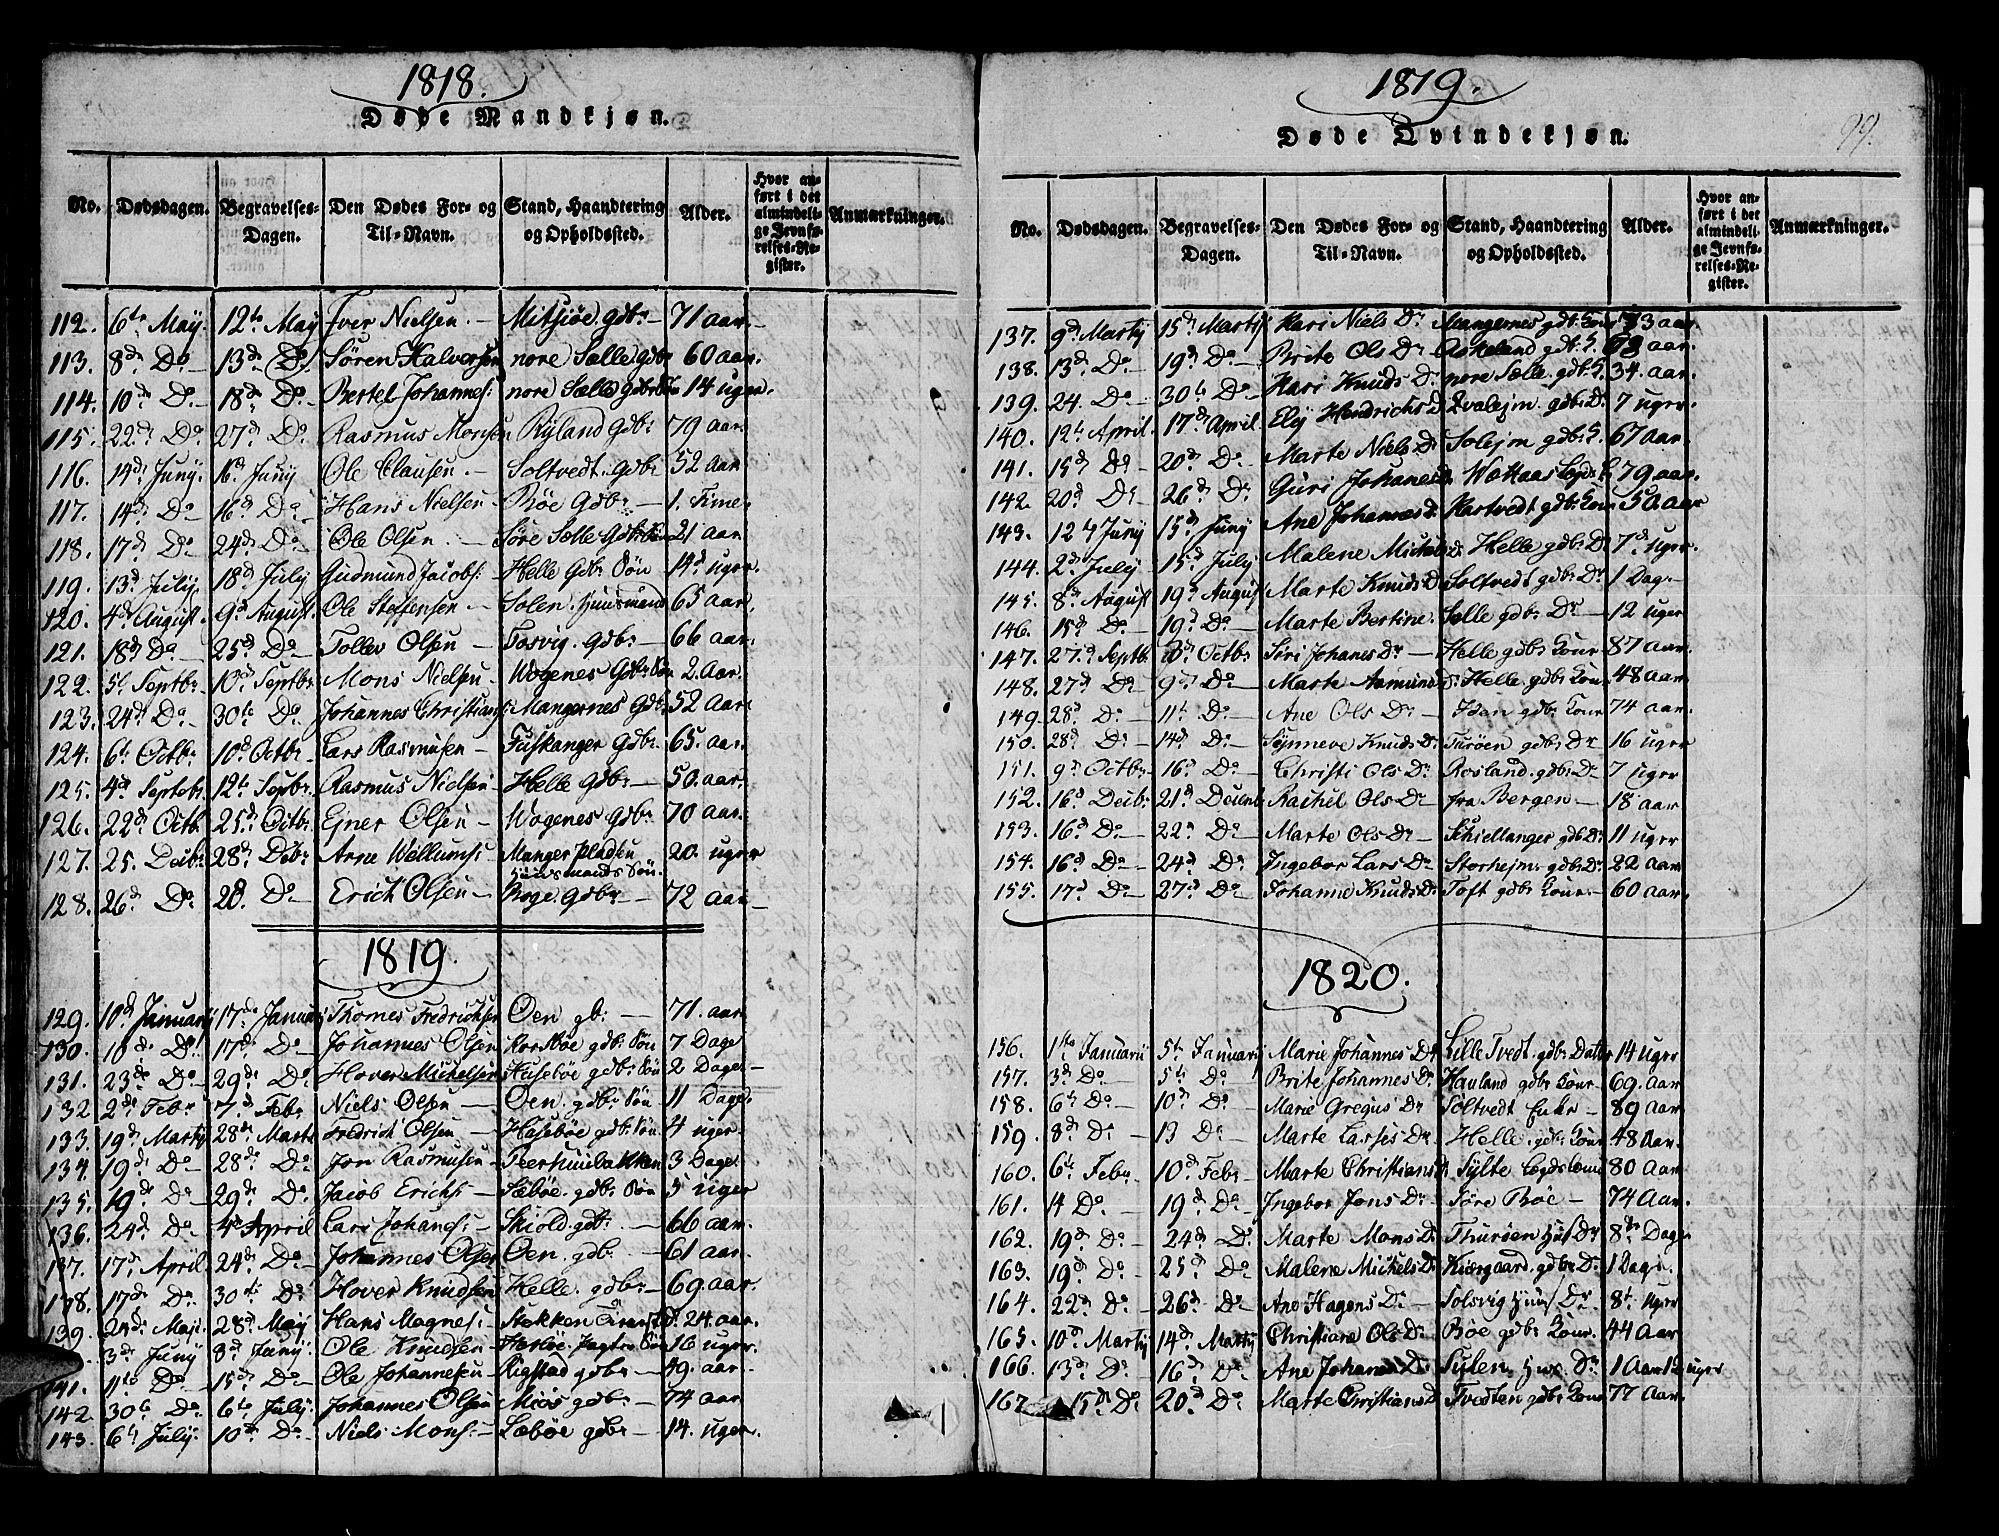 1818.
Døde Mandkjøn.
No. Dødsdagen. Begravelses-Dagen. Den Dødes For- og Til-Navn. Stand, Haandtering og Opholdssted. Alder. Hvor anført i det almindelige Jevnførelses-Register. Anmærkninger.
112. 6te May. 12te May Iver Nielsen.– Mitsiøe. gdbr– 71 aar.–
113. 8de Do– 13de Do. Søren Halversen nore Sælle Gdbr 60 aar.
114. 10de Do– 18de Do– Bertel Johannes: nore Sælle Gdbr 14 uger.
115. 22de Do– 27de Do Rasmus Monsen Ryland Gdbr 79 aar.
116. 14de Juny. 16d. Juny Ole Clausen.– Soltvedt. Gdbr 52 Aar.
117. 14de Do 16de Do– Hans Nielsen– Bøe Gdbr.– 1. Time–
118. 17d Do 24de Do– Ole Olsen.– Søre Sælle Gdbr Søn 21 aar
119. 13d July 18d July Gudmund Jacobs: Helle Gdbr Søn 14d uger.
120. 4de August. 9d August. Ole Steffensen– Solen. Huusmand 65 Aar.
121. 18de Do 25d Do– Tollev Olsen– Fosvig. Gdbr– 66 aar.
122. 5t Septbr. 10d Septbr. Mons Nielsen– Wogenes Gdbr Søn 2. Aar.
123. 24d Do– 30te Do– Johannes Christians: Mangernes Gdb: 52 Aar.
124. 6te Octbr. 10d Octbr– Lars Rasmusen– Fuskanger Gdbr. 65. aar.
125. 4d Septebr. 12te Sepbr. Rasmus Nielsen– Helle Gdbr– 50. aar.
126. 22de Octb. 25d Octbr. Ejner Olsen– Wogenes Gdbr 70 aar.
127. 25. Deibr. 28de Debr. Arne Wellums: Manger pladsen Huusmands Søn. 20. uger
128. 26de Do 28. Do– Erich Olsen– Boge. Gdbr– 72 aar–
1819.
129. 10d Januarij 17de Januarij Thomes Fredrichsen Øen gb:– 71. aar.
130. 10de Do 17de Do– Johannes Olsen Korsbøe gdbr. Søn 7 Dage
131. 23de Do– 29de Do– Hover Mickelsen Husebøe gdbr Søn 2 Dage–
132 2de Febr 7de Febr– Niels Olsen– Øen. gdbr Søn 11 Dage.
133. 19d Martij 28de Marti Fredrich Olsen– Hasebøe gdbr. Søn 4 uger.–
134. 19de Do– 28de Do– Jon Rasmusen– 3 Dage.
135. 19de Do– 29de Do– Jacob Erichs– Sæbøe. gdbr Søn 5 uger
136. 24d Do– 4de April Lars Johans:– Skiold. gdbr.– 66 aar.
137. 17d April 24d. Do– Johannes Olsen Øen. gdb:– 61 aar.
138. 17de Do. 30te Do. Hover Knudsen Helle. gdbr– 69. aar.
139. 24de Maj. 28d May Hans Magnes: 24. aar.
3de Juny 8de Junij. Ole Knudsen– 16 uger.
141. 11te Do– 15de Do– Ole Johannesen Rigstad gdbr– 49. aar.
142. 30te Do– 6te July. Johannes Olsen Miøs gdbr– 74 aar
143. 6te July. 10de Do– Niels Mons:– Sæbøe gdbr– 14. uger.
1819.
99.
Døde Qvindekjøn.
No. Dødsdagen. Begravelses-Dagen. Den Dødes For- og Til-Navn. Stand, Haandtering og Opholdssted. Alder. Hvor anført i det almindelige Jevnførelses-Register. Anmærkninger.
137. 9d Martij 15d Martij Kari Niels Dr Mangernes gdbr. Kone 73 aar.
138. 13de Do– 19de Do– Brite Ols Dr Askeland gdbr. K. aar.
139. 24. Do– 30te Do– Kari Knuds Dr nore Sælle. gdbr. K. 34. aar.
140. 12te April. 17d April. Ely Hendrichs Dr Qvalejm. gdbr. Dr. 7 uger.
141. 15d Do 20de Do– Marte Niels Dr. Solejm gdbr. K. 67 aar.
142. 20d Do 26de Do– Guri Johanes Dr. 79 aar.
143. 12te Juny 15d Juny Ane Johannes Dr. Kartvedt gdbr. Kone 50 aar
144. 2d July 15d July Malene Mickels Dr. Helle gdbr. Dr. 7d uger.
145. 8d August 19d August Marte Knuds Dr Soltvedt gdbr Dr 1 Dag.–
146. 15d Do– 19de Do– Marte Bertine. Sælle gdbr Dr– 12 uger
147. 27d Septb. 3de Octbr Siri Johanes Dr– Helle gdbr Kone 87 Aar.
148. 27d Do 9de Do– Marte Asmunds Dr Helle. gdbr Kone 48 aar.
149. 28d Do– 11te Do– Ane Ols Dr– Idan gdbr Kone 74 aar.
150. 28d Do. 14d Do– Synneve Knuds Dr. Turøen gdbr Dr 16 uger
151. 9d Octbr. 16d Do– Christi Ols Dr Rosland. gdbr Dr 7 uger
152. 16d Deibr. 21d Deienbr Rachel Ols Dr– fra Bergen– 18 aar
153. 16d Do– 22de Do– Marte Ols Dr– Schiellanger gdbr Dr 11 uger
154. 16d Do– 24d Do– Ingebor Lars Dr– Storhejm gdbr Dr. 22 aar.
155. 17d Do– 27de Do– Johanne Knuds Dr Toft gdbr Kone.– 60 Aar.
1820.
156. 1ste Januarij 5te Januarij Marie Johannes Dr Lille Tvedt. gdbr Datter 14 uger
157. 3d Do– 5te Do– Brite Johannes Dr. Havland gdbr Kone– 69. Aar
158. 6te Do– 10d Do– Marie Gregus Dr Soltvedt Enke– 89 Aar
159. 8d Do– 13 Do– Marte Larses Dr Helle. gdbr. Kone 48 Aar.
160. 6te Febr 10d Febr– Marte Christians Dr Sylte 80 Aar
161. 14 Do– 19d Do– Ingebor Jons Dr– Søre Bøe– 74 Aar.
162. 19d Do– 24de Do. Marte Mons Dr Thurøen Dr 8te Dage
163. 19d Do– 25d Do Malene Mickels Dr Kiergaard. gdbr Dr 1 Dag.
164. 22d Do. 26d Do– Ane Hagens Dr– Solsvig Dr 8te uger
165. 10d Martij 14d Martij Christiane Ols Dr Bøe gdbr Kone– 44 Aar
166. 13d Do– 16d Do– Ane Johanes Dr Sulen, Dr 1 Aar 12 uger
167. 15de Do 20d Do– Marte Christians Dr Tvedten gdbr Kone 77 aar.